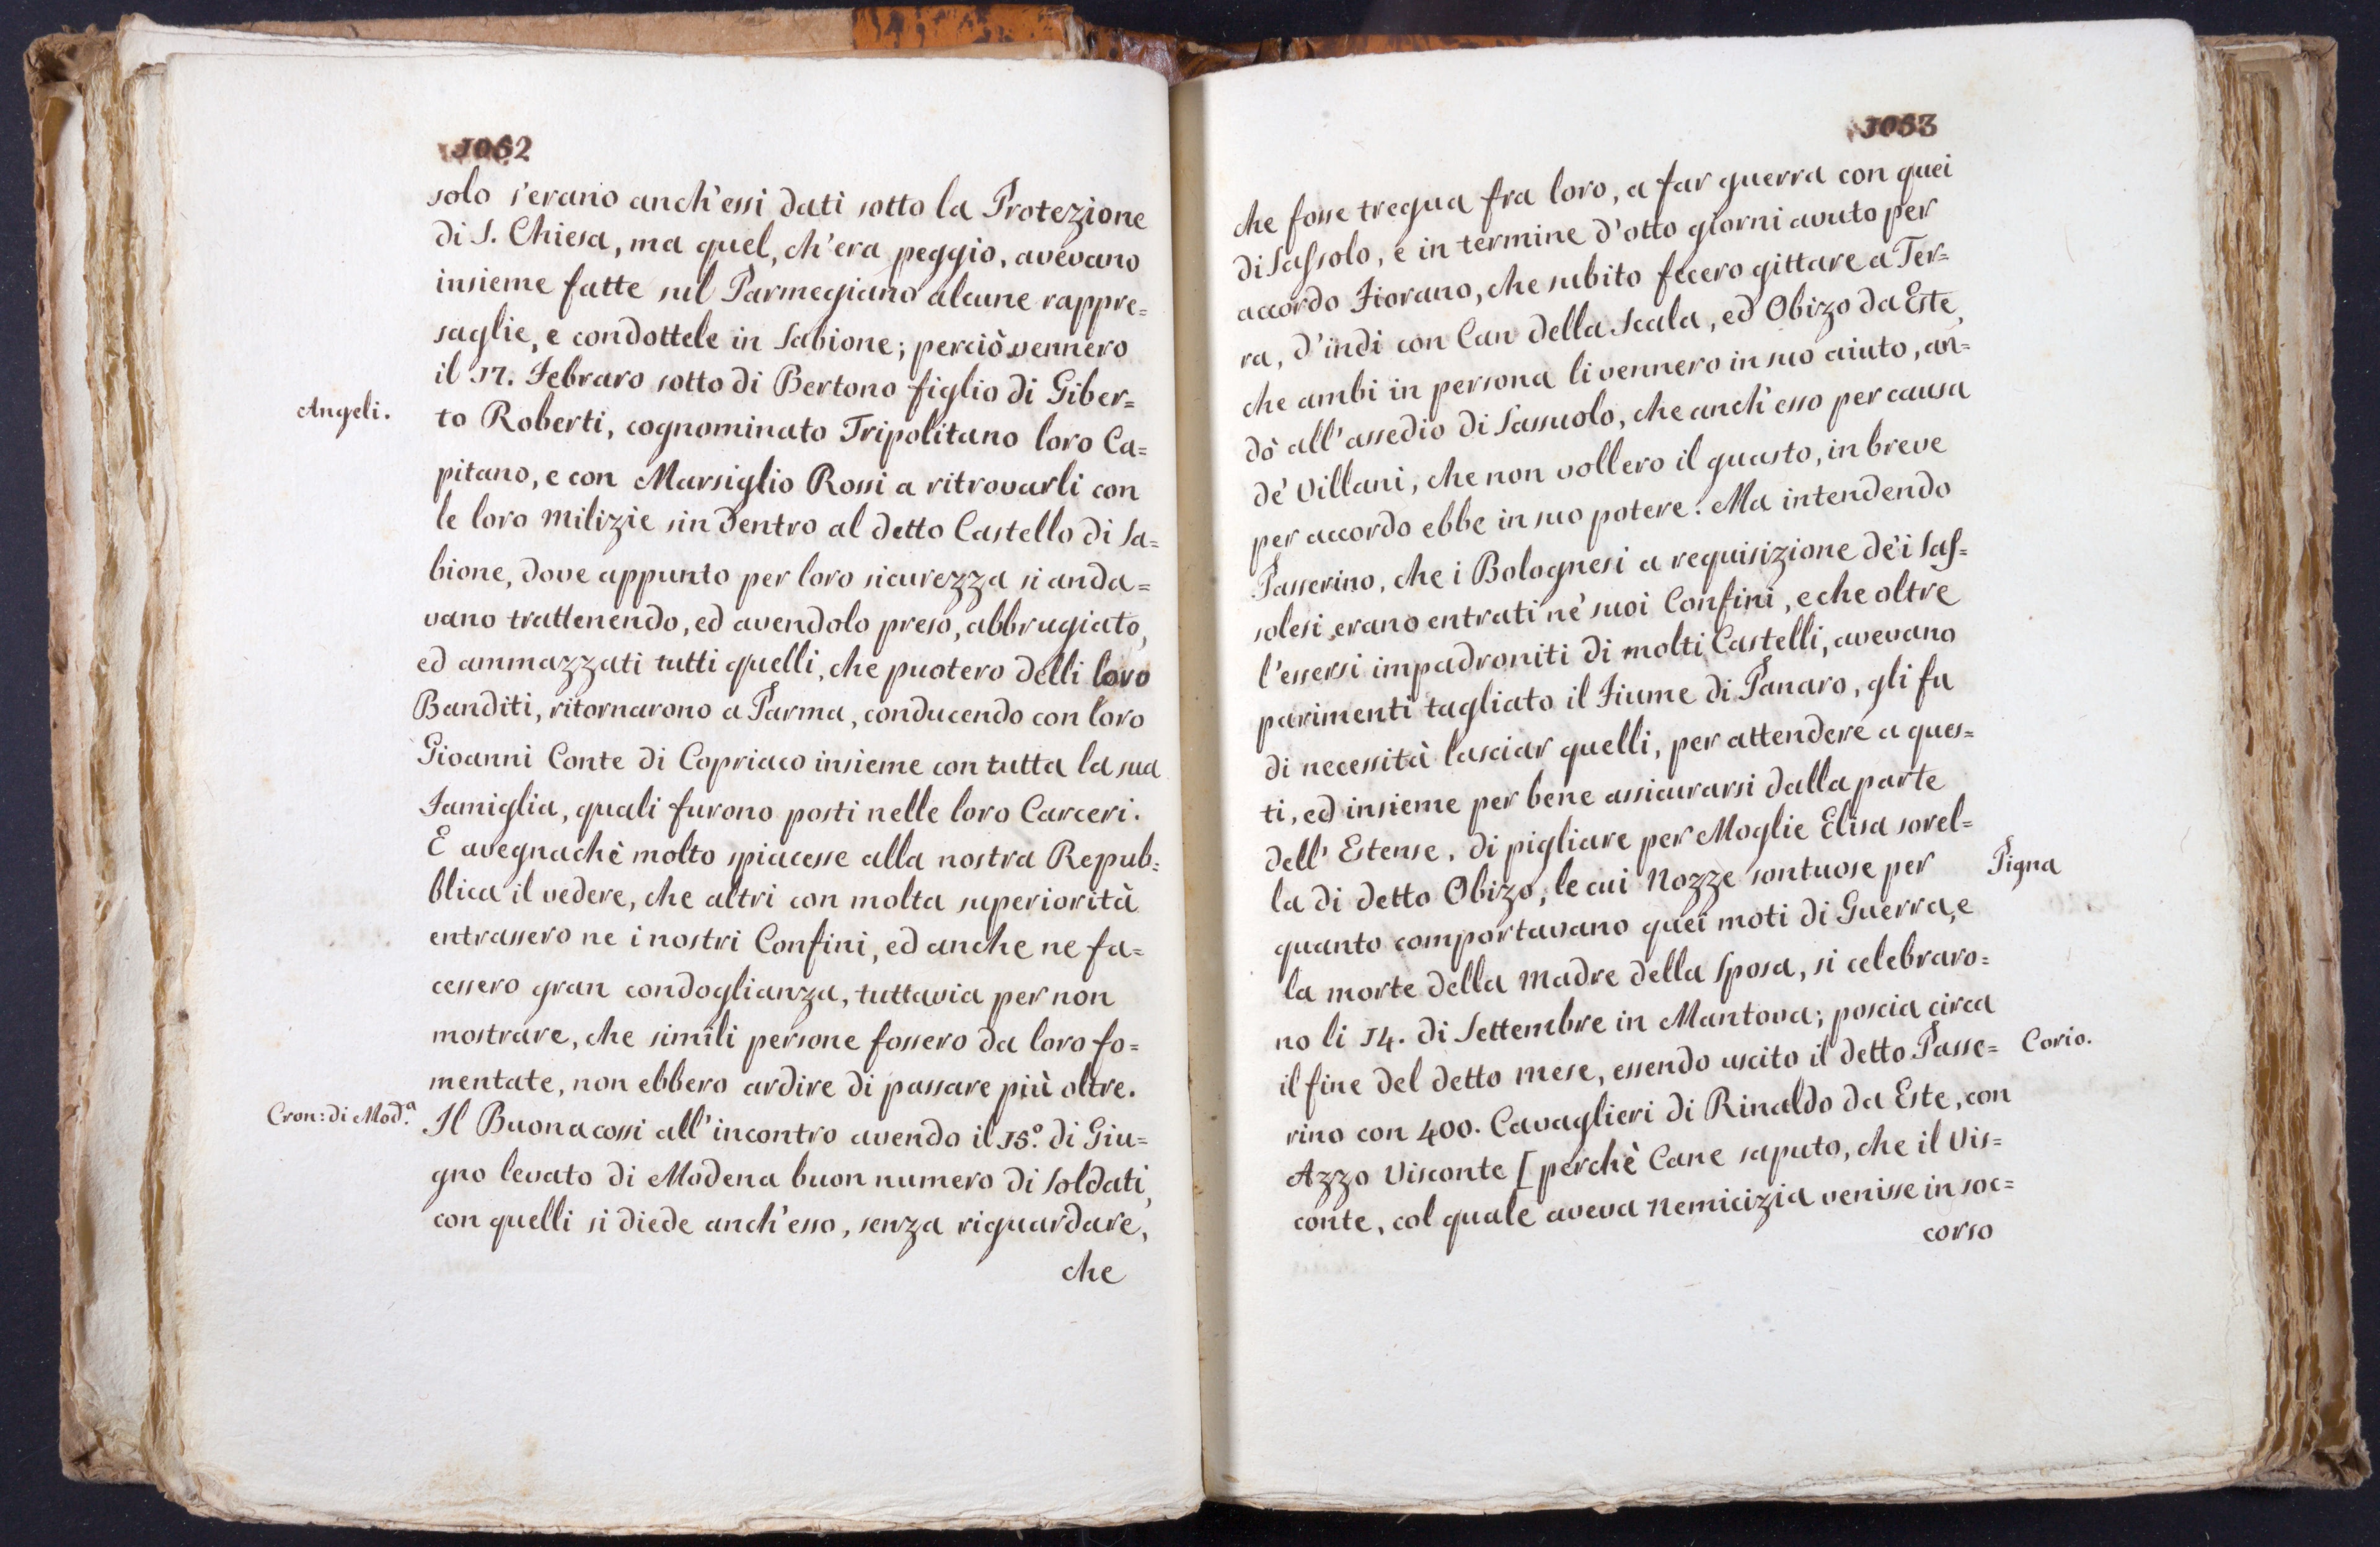 1062
solo s'erano anch'essi dati sotto la Protezione
di S. Chiesa, ma quel, ch'era peggio, avevano
insieme fatte sul Parmegiano alcune rappre=
saglie, e condottele in Sabione; perciò vennero
il 17. Febraro sotto di Bertono figlio di Giber=
Angeli.
to Roberti, cognominato Tripolitano loro Ca=
pitano, e con Marsiglio Rossi a ritrovarli con
le loro Milizie sin dentro al detto Castello di Sa=
bione, dove appunto per loro sicurezza si anda=
vano trattenendo, ed avendolo preso, abbrugiato,
ed ammazzati tutti quelli, che puotero delli loro
Banditi, ritornarono a Parma, conducendo con loro
Gioanni Conte di Copriaco insieme con tutta la sua
Famiglia, quali furono posti nelle loro Carceri.
E avegnachè molto spiacesse alla nostra Repub=
blica il vedere, che altri con molta superiorità
entrassero ne i nostri Confini, ed anche ne fa=
cessero gran condoglianza, tuttavia per non
mostrare, che simili persone fossero da loro fo=
mentate, non ebbero ardire di passare più oltre.
Cron: di Mod.ª
Il Buonacossi all'incontro avendo il 15.º di Giu=
gno levato di Modena buon numero di Soldati,
con quelli si diede anch'esso, senza riguardare,
che
1063
che fosse tregua fra loro, a far guerra con quei
di Sassolo, e in termine d'otto giorni avuto per
accordo Fiorano, che subito fecero gittare a Ter=
ra, d'indi con Can della Scala, ed Obizo da Este,
che ambi in persona li vennero in suo aiuto, an=
dò all'assedio di Sassuolo, che anch'esso per causa
de' Villani, che non vollero il guasto, in breve
per accordo ebbe in suo potere. Ma intendendo
Passerino, che i Bolognesi a requisizione de'i Sas=
solesi erano entrati ne' suoi Confini, e che oltre
l'essersi impadroniti di molti Castelli, avevano
parimenti tagliato il Fiume di Panaro, gli fu
di necessità lasciar quelli, per attendere a ques=
ti, ed insieme per bene assicurarsi dalla parte
dell' Estense, di pigliare per Moglie Elisa sorel=
la di detto Obizo; le cui Nozze sontuose per
Pigna
quanto comportavano quei moti di Guerra, e
la morte della Madre della Sposa, si celebraro=
no li 14. di Settembre in Mantova; poscia circa
il fine del detto mese, essendo uscito il detto Passe=
Corio.
rino con 400. Cavaglieri di Rinaldo da Este, con
Azzo Visconte [perchè Cane saputo, che il Vis=
conte, col quale aveva Nemicizia venisse in soc=
corso